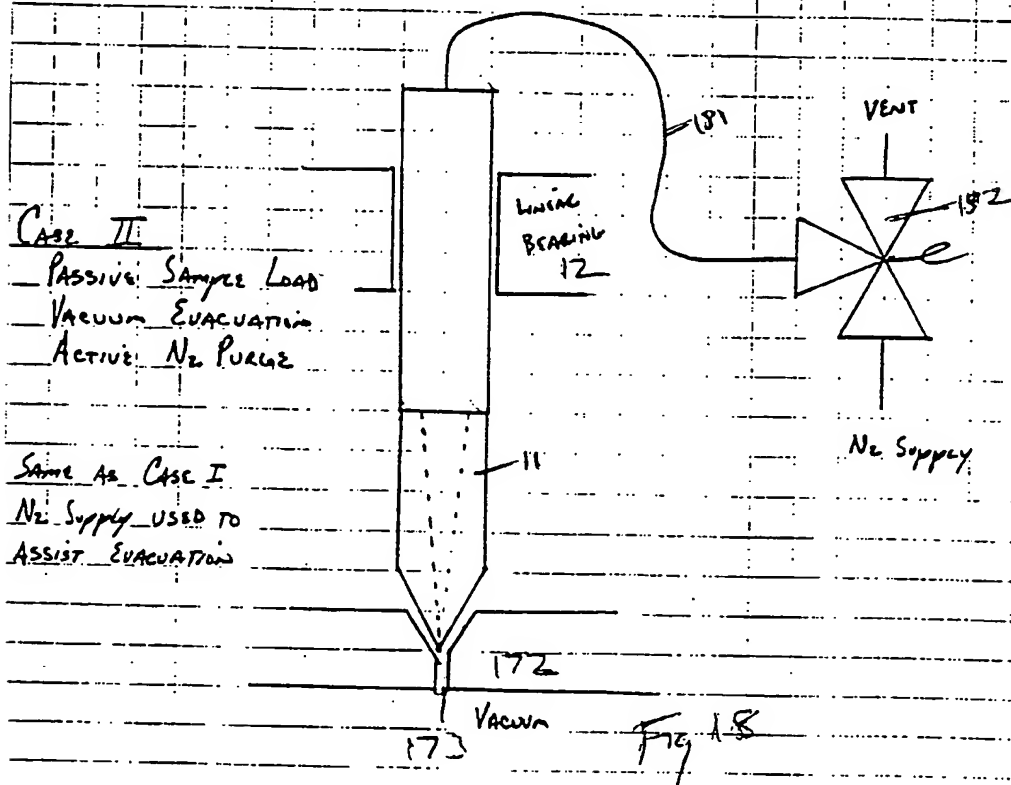 CASE II
PASSIVE SAMPLE LOAD
VACUUM EVACUATION
ACTIVE N2 PURGE
SAME AS CASE I
N2 Supply USED TO
ASSIST EVACUATION
LINEAR
BEARING
12
181
VENT
182
N2 Supply
11
172
VACUUM
173
Fig 18